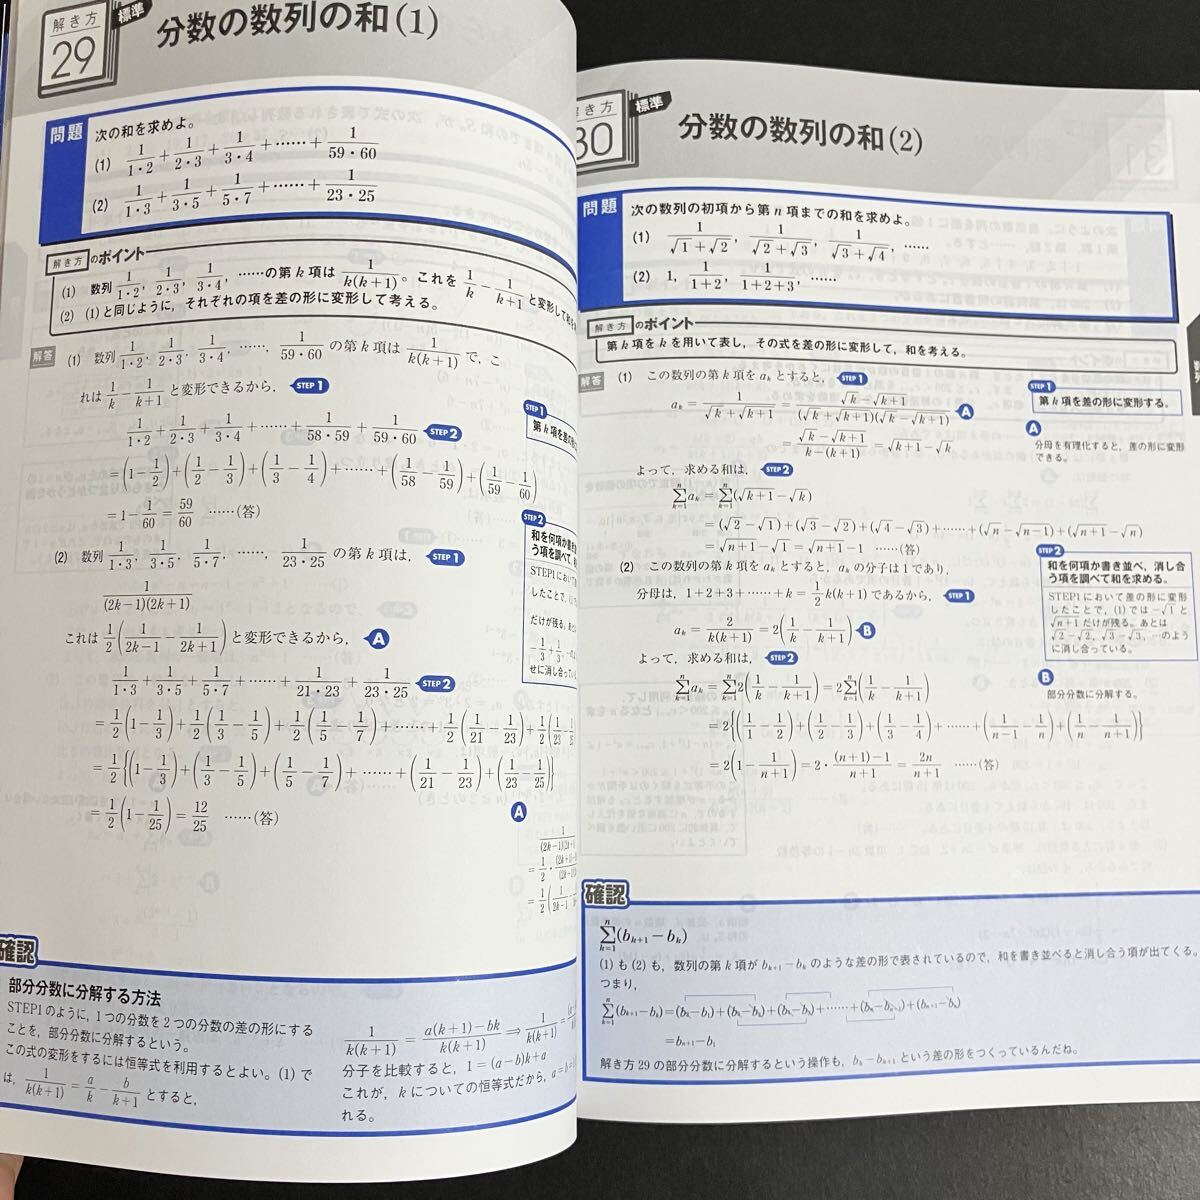 解き方
29
標準
分数の数列の和(1)
問題
次の和を求めよ。
(1) 1/(1・2)+1/(2・3)+1/(3・4)+……+1/(59・60)
(2) 1/(1・3)+1/(3・5)+1/(5・7)+……+1/(23・25)
解き方のポイント
(1) 数列 1/(1・2), 1/(2・3), 1/(3・4), ……の第k項は 1/(k(k+1))。これを 1/k−1/(k+1) と変形して
(2) (1)と同じように, それぞれの項を差の形に変形して考える。
解答
(1) 数列 1/(1・2), 1/(2・3), 1/(3・4), ……, 1/(59・60) の第k項は 1/(k(k+1)) で, こ
れは 1/k−1/(k+1) と変形できるから, STEP1
1/(1・2)+1/(2・3)+1/(3・4)+……+1/(58・59)+1/(59・60) STEP2
=(1−1/2)+(1/2−1/3)+(1/3−1/4)+……+(1/58−1/59)+(1/59−1/60)
=1−1/60=59/60 ……(答)
(2) 数列 1/(1・3), 1/(3・5), 1/(5・7), ……, 1/(23・25) の第k項は, STEP1
1/((2k−1)(2k+1))
これは 1/2(1/(2k−1)−1/(2k+1)) と変形できるから, A
1/(1・3)+1/(3・5)+1/(5・7)+……+1/(21・23)+1/(23・25) STEP2
=1/2(1−1/3)+1/2(1/3−1/5)+1/2(1/5−1/7)+……+1/2(1/21−1/23)+1/2(1/23−1/25
=1/2{(1−1/3)+(1/3−1/5)+(1/5−1/7)+……+(1/21−1/23)+(1/23−1/25)}
=1/2(1−1/25)=12/25 ……(答)
STEP1
第k項を差の
STEP2
和を何項か書き
う項を調べて和
STEP1におい
したことで, (1)
だけが残る。あと
−1/3+1/3, …の
せに消し合ってい
A
1/((2k−1)(2k+1
=1/2・((2k+1)−
=1/2(1/(2k−1)
確認
部分分数に分解する方法
STEP1のように, 1つの分数を2つの分数の差の形にする
ことを, 部分分数に分解するという。
この式の変形をするには恒等式を利用するとよい。(1)で
は, 1/(k(k+1))=a/k−b/(k+1) とすると,
1/(k(k+1))=(a(k+1)−bk)/(k(k+1)) ⇒ 1/(k(k+1))=
分子を比較すると, 1=(a−b)k+a
これが, kについての恒等式だから, a=b=
れる。
解き方
30
標準
分数の数列の和(2)
問題
次の数列の初項から第n項までの和を求めよ。
(1) 1/(√1+√2), 1/(√2+√3), 1/(√3+√4), ……
(2) 1, 1/(1+2), 1/(1+2+3), ……
解き方のポイント
第k項をkを用いて表し, その式を差の形に変形して, 和を考える。
解答
(1) この数列の第k項をa_kとすると, STEP1
a_k=1/(√k+√k+1)=(√k−√k+1)/((√k+√k+1)(√k−√k+1)) A
=(√k−√k+1)/(k−(k+1))=√k+1−√k
よって, 求める和は, STEP2
Σ[k=1→n]a_k=Σ[k=1→n](√k+1−√k)
=(√2−√1)+(√3−√2)+(√4−√3)+……+(√n−√n−1)+(√n+1−√n)
=√n+1−√1=√n+1−1 ……(答)
(2) この数列の第k項をa_kとすると, a_kの分子は1であり,
分母は, 1+2+3+……+k=1/2k(k+1)であるから, STEP1
a_k=2/(k(k+1))=2(1/k−1/(k+1)) B
よって, 求める和は, STEP2
Σ[k=1→n]a_k=Σ[k=1→n]2(1/k−1/(k+1))=2Σ[k=1→n](1/k−1/(k+1))
=2{(1/1−1/2)+(1/2−1/3)+(1/3−1/4)+……+(1/(n−1)−1/n)+(1/n−1/(n+1))}
=2(1−1/(n+1))=2・((n+1)−1)/(n+1)=2n/(n+1) ……(答)
STEP1
第k項を差の形に変形する。
A
分母を有理化すると, 差の形に変形
できる。
STEP2
和を何項か書き並べ, 消し合
う項を調べて和を求める。
STEP1において差の形に変形
したことで, (1)では−√1と
√n+1だけが残る。あとは
√2−√2, √3−√3, …のよう
に消し合っている。
B
部分分数に分解する。
数列
確認
Σ[k=1→n](b_k+1−b_k)
(1)も(2)も, 数列の第k項がb_k+1−b_kのような差の形で表されているので, 和を書き並べると消し合う項が出てくる。
つまり,
Σ[k=1→n](b_k+1−b_k)=(b_2−b_1)+(b_3−b_2)+(b_4−b_3)+……+(b_n−b_n−1)+(b_n+1−b_n)
=b_n+1−b_1
解き方29の部分分数に分解するという操作も, b_n−b_n+1という差の形をつくっているんだね。